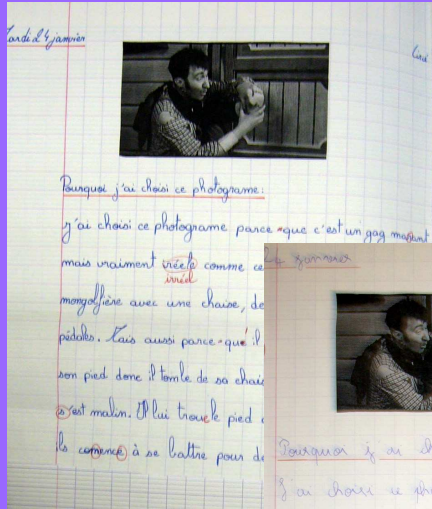 Mardi 24 janvier
Ciné
Pourquoi j'ai choisi ce photograme:
j'ai choisi ce photograme parce que c'est un gag marrant
mais vraiment réele comme ce
irréel
mongolfière avec une chaise, de
pédales. Mais aussi parce qu' il
son pied donc il tombe de sa chai
s'est malin. Il lui trouve le pied
ils comence à se battre pour de
24 janvier
Pourquoi j'ai ch
J'ai choisi ce ph